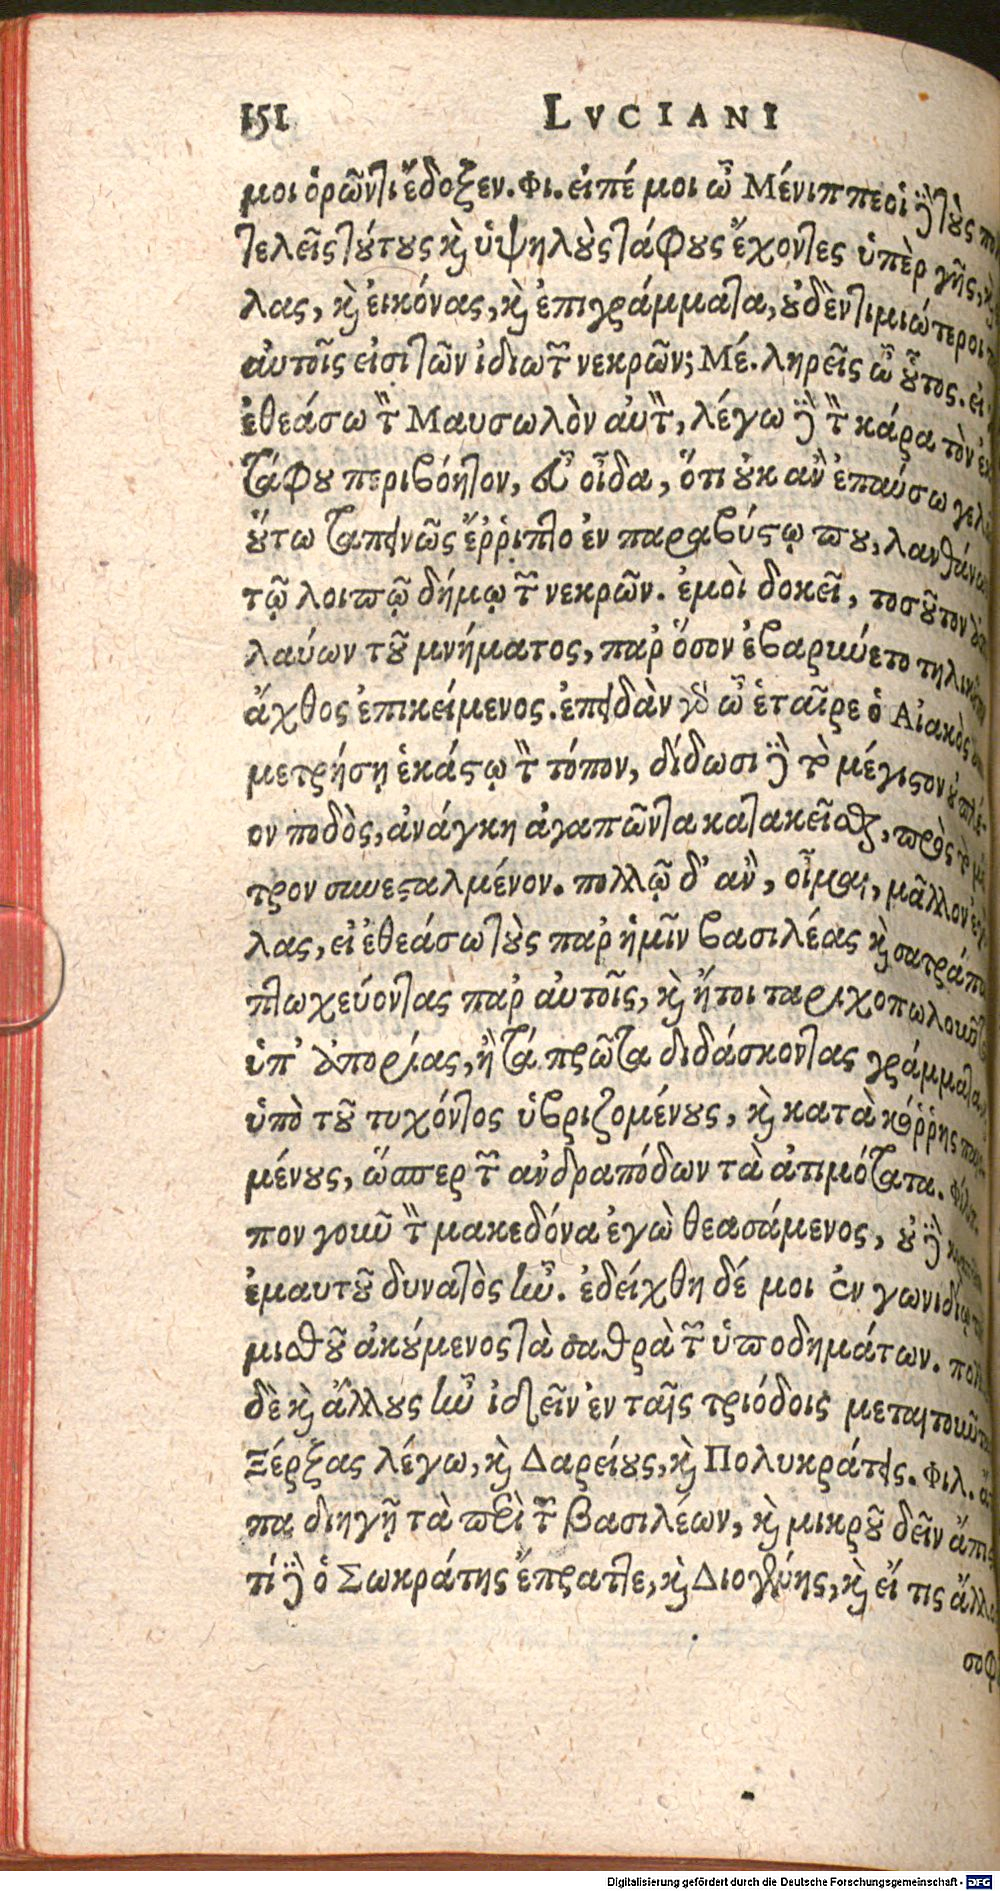 151 LVCIANI
μοι ὁρῶντι ἔδοξεν. Φι. εἰπέ μοι ὦ Μένιππε οἱ δὲ τοὺς
τελεῖς τούτους καὶ ὑψηλοὺς τάφους ἔχοντες ὑπὲρ γῆς, καὶ
λας, καὶ εἰκόνας, καὶ ἐπιγράμματα, οὐδὲν τιμιώτεροι
αὐτοῖς εἰσι τῶν ἰδιωτῶν νεκρῶν; Μέ. ληρεῖς ὦ οὗτος. εἰ
ἐθεάσω τὸν Μαυσωλὸν αὐτὸν, λέγω δὲ τὸν κάρα τὸν ἐκ
τάφου περιβόητον, εὖ οἶδα, ὅτι οὐκ ἂν ἐπαύσω γελ
οὕτω ταπεινῶς ἔῤῥιπτο ἐν παραβύστῳ που, λανθάνων
τῷ λοιπῷ δήμῳ τῶν νεκρῶν. ἐμοὶ δοκεῖ, τοσοῦτον ἀπο
λαύων τοῦ μνήματος, παρ ὅσον ἐβαρύνετο τηλικοῦτον
ἄχθος ἐπικείμενος. ἐπειδὰν γὰρ ὦ ἑταῖρε ὁ Αἰακὸς
μετρήσῃ ἑκάστῳ τὸν τόπον, δίδωσι δὲ τὸ μέγιστον οὐ πλέ-
ον ποδὸς, ἀνάγκη ἀγαπῶντα κατακεῖσθαι, πρὸς τὸ μέ
τρον συνεσταλμένον. πολλῷ δ' ἂν, οἶμαι, μᾶλλον ἐγέ
λας, εἰ ἐθεάσω τοὺς παρ ἡμῖν βασιλέας καὶ σατράπας
πτωχεύοντας παρ αὐτοῖς, καὶ ἤτοι ταριχοπωλοῦντας
ὑπ' ἀπορίας, ἢ τά πρῶτα διδάσκοντας γράμματα, καὶ
ὑπὸ τοῦ τυχόντος ὑβριζομένους, καὶ κατὰ κόῤῥης παιο
μένους, ὥσπερ τῶν ἀνδραπόδων τὰ ἀτιμότατα. Φίλιπ-
πον γοῦν τὸν μακεδόνα ἐγὼ θεασάμενος, οὐ δὲ κρατεῖν
ἐμαυτοῦ δυνατὸς ἦν. ἐδείχθη δέ μοι ἐν γωνιδίῳ τινὶ
μισθοῦ ἀκούμενος τὰ σαθρὰ τῶν ὑποδημάτων. πολλοὺς
δὲ καὶ ἄλλους ἦν ἰδεῖν ἐν ταῖς τριόδοις μεταιτοῦντας
Ξέρξας λέγω, καὶ Δαρείους, καὶ Πολυκράτεις. Φιλ. ἄτο
πα διηγῇ τὰ περὶ τῶν βασιλέων, καὶ μικροῦ δεῖν ἄπιστα
τί δὲ ὁ Σωκράτης ἔπραττε, καὶ Διογένης, καὶ εἴ τις ἄλλος
σοφ
Digitalisierung gefördert durch die Deutsche Forschungsgemeinschaft - DFG